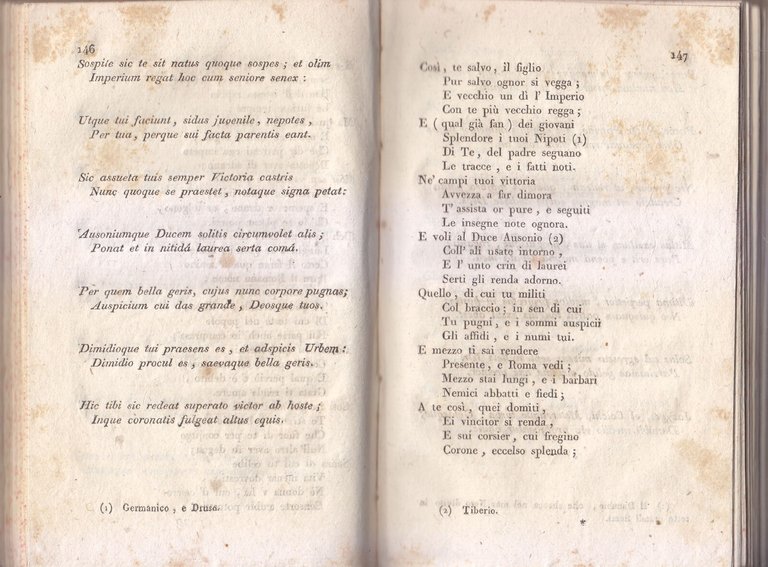 146
Sospite sic te sit natus quoque sospes ; et olim
Imperium regat hoc cum seniore senex :
Utque tui faciunt, sidus juvenile, nepotes,
Per tua, perque sui facta parentis eant.
Sic assueta tuis semper Victoria castris
Nunc quoque se praestet, notaque signa petat:
Ausoniumque Ducem solitis circumvolet alis ;
Ponat et in nitidá laurea serta comá.
Per quem bella geris, cujus nunc corpore pugnas;
Auspicium cui das grande, Deosque tuos.
Dimidioque tui praesens es, et adspicis Urbem :
Dimidio procul es, saevaque bella geris.
Hic tibi sic redeat superato victor ab hoste ;
Inque coronatis fulgeat altus equis.
(1) Germanico, e Druso.
147
Così, te salvo, il figlio
Pur salvo ognor si vegga ;
E vecchio un dì l' Imperio
Con te più vecchio regga ;
E ( qual già fan ) dei giovani
Splendore i tuoi Nipoti (1)
Di Te, del padre seguano
Le tracce, e i fatti noti.
Ne' campi tuoi vittoria
Avvezza a far dimora
T' assista or pure, e seguiti
Le insegne note ognora.
E voli al Duce Ausonio (2)
Coll' ali usate intorno,
E l' unto crin di laurei
Serti gli renda adorno.
Quello, di cui tu militi
Col braccio; in sen di cui
Tu pugni, e i sommi auspicii
Gli affidi, e i numi tui.
E mezzo ti sai rendere
Presente, e Roma vedi ;
Mezzo stai lungi, e i barbari
Nemici abbatti e fiedi ;
A te così, quei domiti,
Ei vincitor si renda,
E sui corsier, cui fregino
Corone, eccelso splenda ;
(2) Tiberio.
*